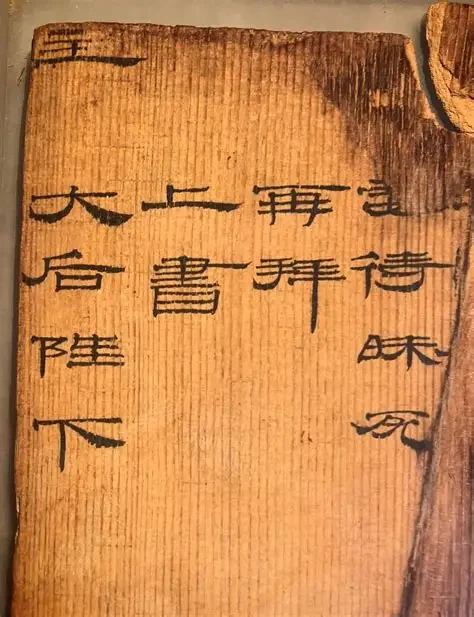 妾待昧死
再拜
上書
王
大后陛下